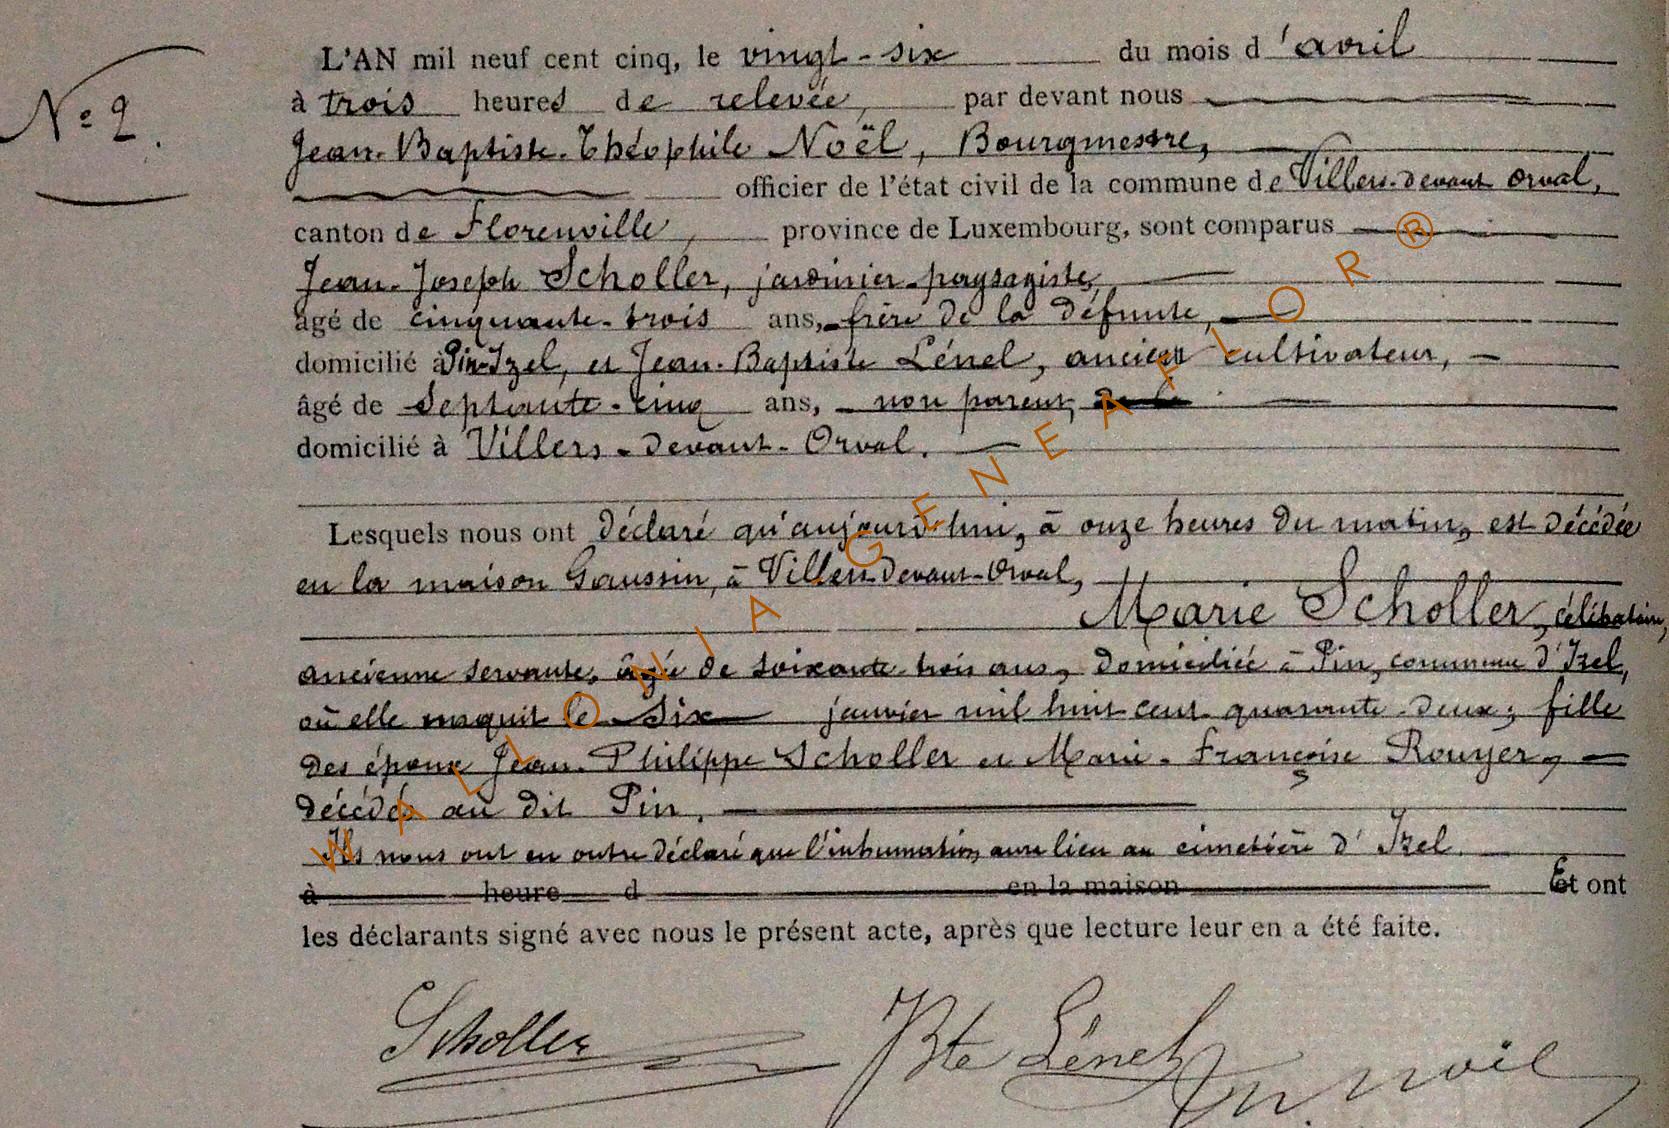 N° 2.
L'AN mil neuf cent cinq, le vingt-six du mois d'avril
à trois heures de relevée, par devant nous
Jean-Baptiste-Théophile Noël, Bourgmestre,
officier de l'état civil de la commune de Villers-devant Orval,
canton de Florenville, province de Luxembourg, sont comparus
Jean-Joseph Scholler, jardinier-paysagiste,
âgé de cinquante-trois ans, frère de la défunte,
domicilié à Pin-Izel, et Jean-Baptiste Lénel, ancien cultivateur,
âgé de Septante-cinq ans, non parent,
domicilié à Villers-devant-Orval.
Lesquels nous ont déclaré qu'aujourd'hui, à onze heures du matin, est décédée
en la maison Gaussin, à Villers-devant-Orval,
Marie Scholler, célibataire,
ancienne servante, âgée de soixante-trois ans, domiciliée à Pin, commune d'Izel,
où elle naquit le six janvier mil huit cent quarante-deux; fille
des époux Jean-Philippe Scholler et Marie-Françoise Rouyer,
décédés au dit Pin.
Ils nous ont en outre déclaré que l'inhumation aura lieu au cimetière d'Izel.
à heure d en la maison Et ont
les déclarants signé avec nous le présent acte, après que lecture leur en a été faite.
Scholler JBte Lénel Noël
WALLONIA GENEAFLOR ®